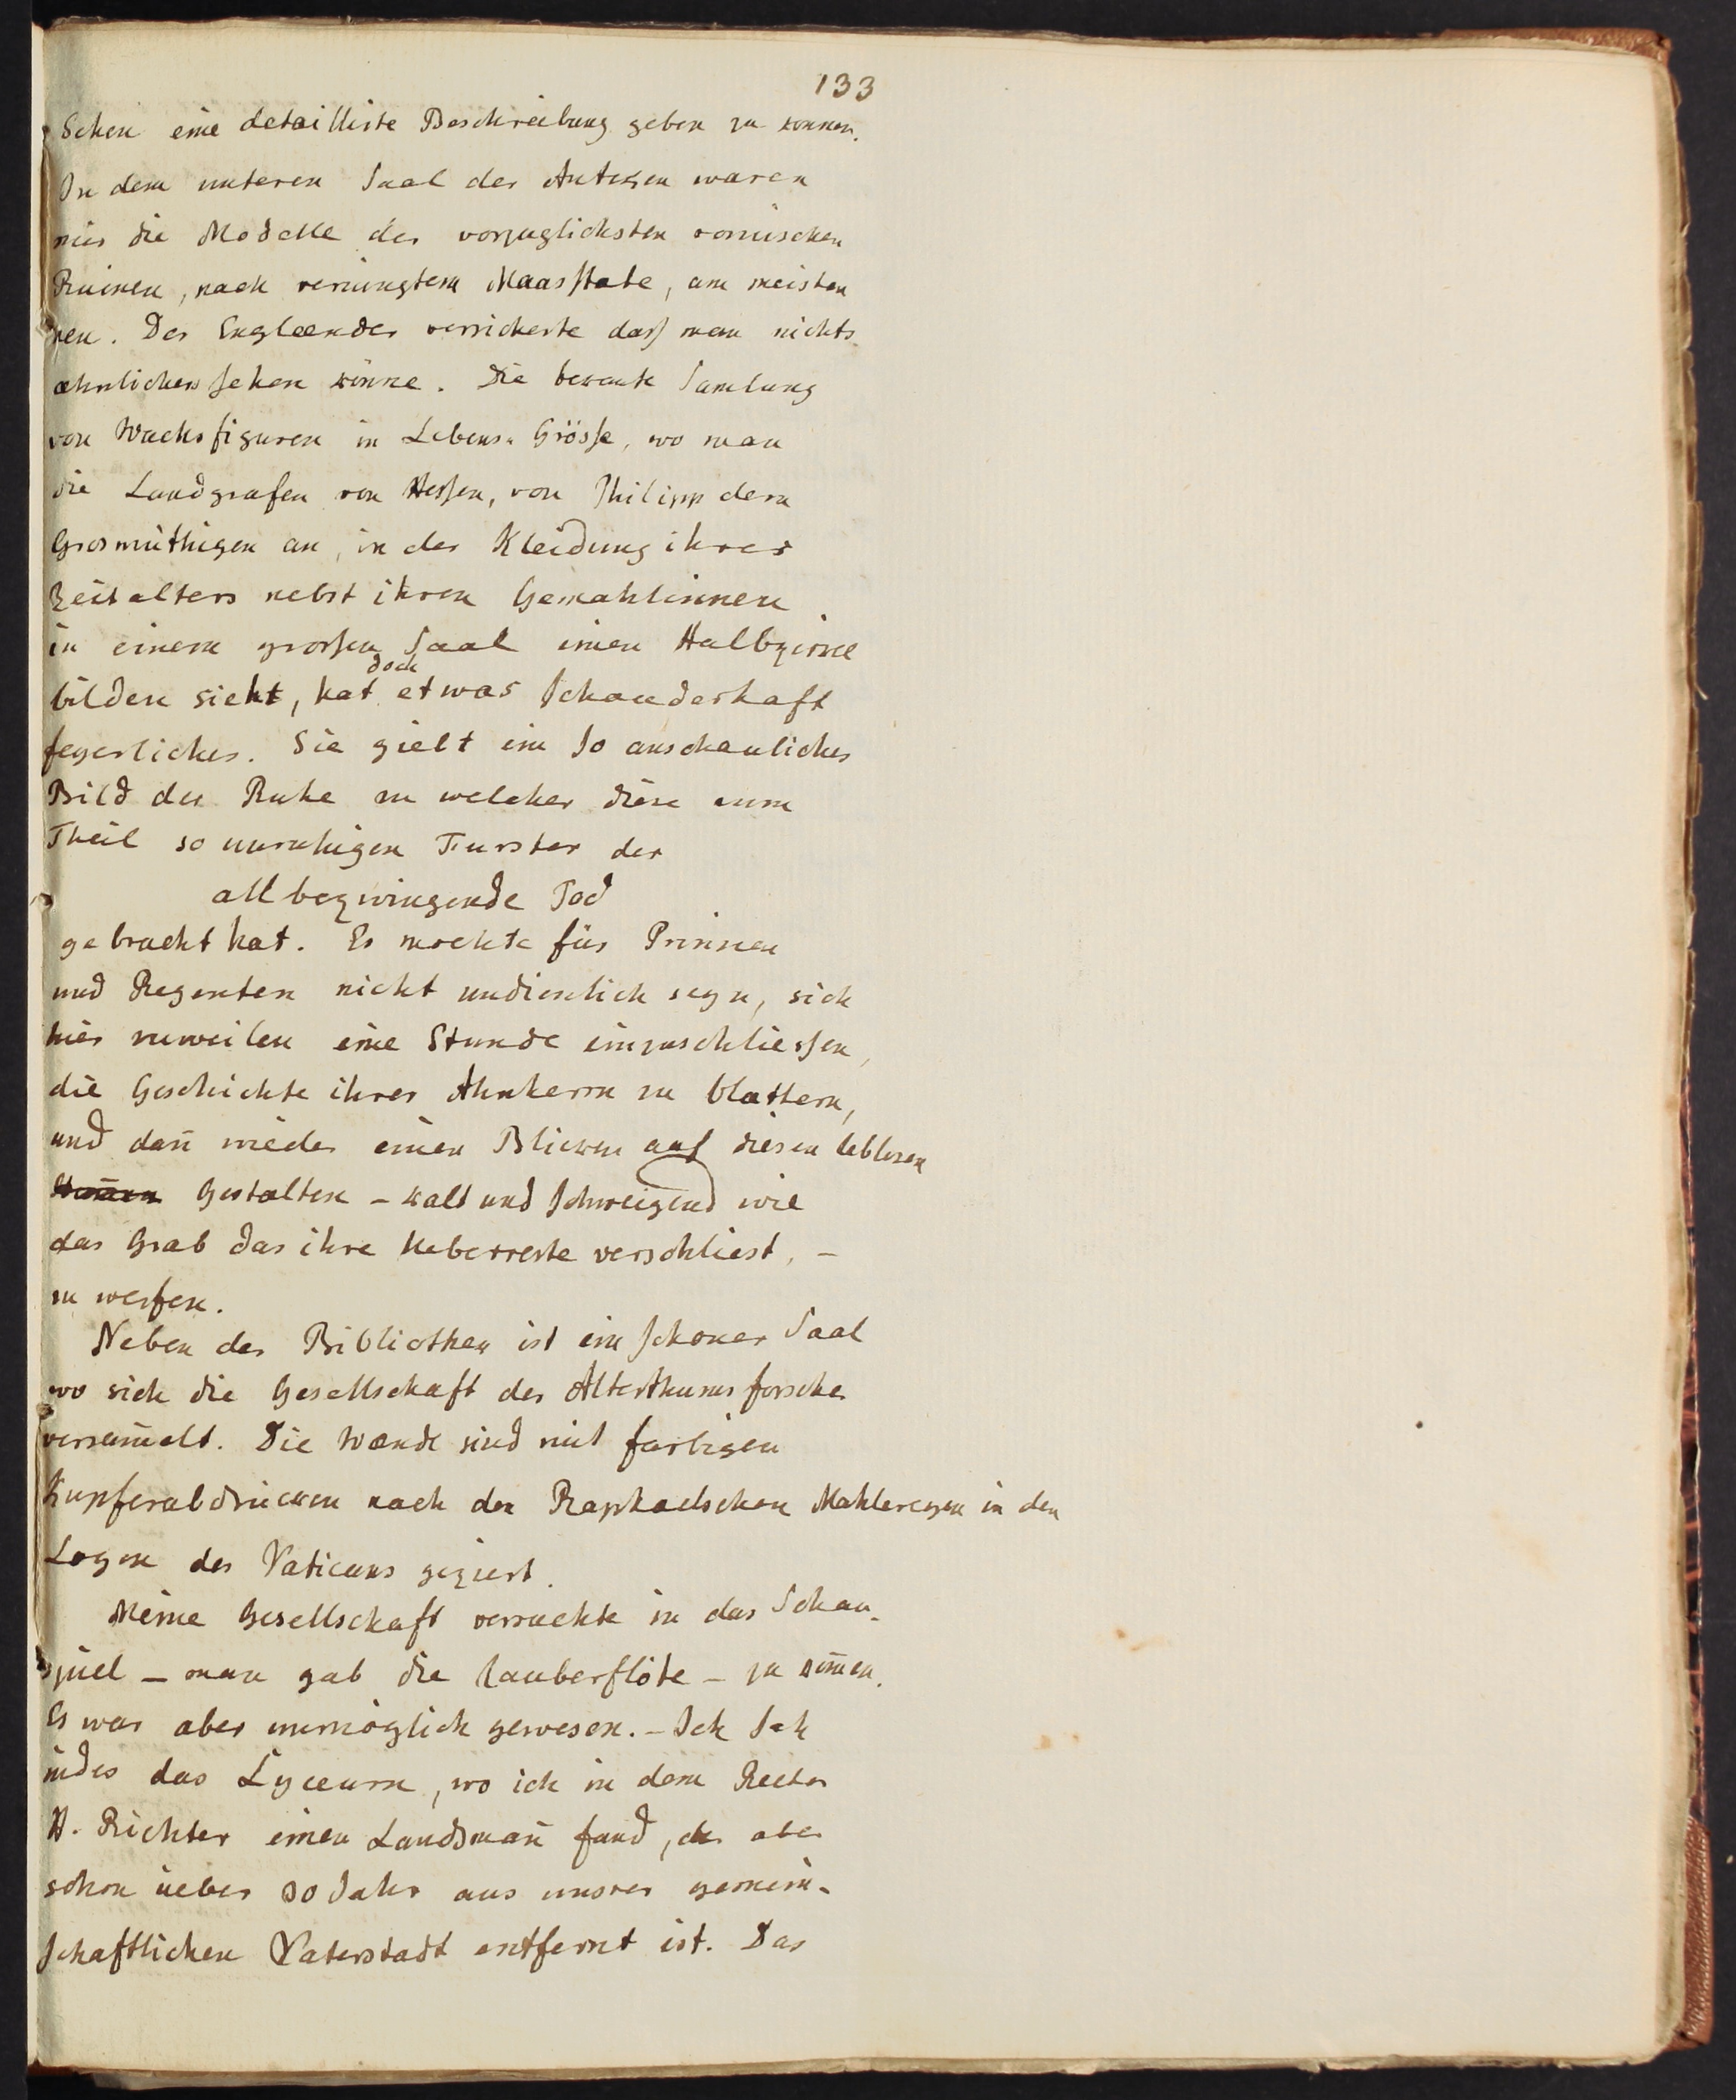 133
Sehen eine detaillirte Beschreibung geben zu konnen.
In dem unteren Saal der Antiken waren
mir die Modelle der vorzuglichsten romischen
Ruinen, nach verjungtem Maasstabe, am meisten
neu. Der Englænder versicherte dass man nichts
æhnliches sehen könne. Die bekante Samlung
von Wachsfiguren in Lebens-Grösse, wo man
die Landgrafen von Hessen, von Philipp dem
Grosmüthigen an, in der Kleidung ihres
Zeitalters nebst ihren Gemahlinnen
in einem grossen Saal einen Halbzirkel
doch
bilden sieht, hat etwas Schauderhaft
feyerliches. Sie giebt ein so anschauliches
Bild der Ruhe zu welcher diese zum
Theil so unruhigen Fursten der
allbezwingende Tod
gebracht hat. Es mochte für Prinzen
und Regenten nicht undienlich seyn, sich
hier zuweilen eine Stunde einzuschliessen,
die Geschichte ihrer Ahnherrn zu blattern,
und dan̄ wieder einen Blicken auf diesen leblosen
Gestalten – kalt und schweigend wie
das Grab das ihre Ueberreste verschliest, –
zu werfen.
Neben der Bibliothek ist ein schoner Saal
wo sich die Gesellschaft der Alterthumsforscher
versam̄elt. Die Wænde sind mit farbigen
Kupferabdrücken nach den Raphaelschen Mahlereyen in den
Logen des Vaticans geziert.
Meine Gesellschaft versuchte in das Schau-
spiel – man gab die Zauberflöte – zu kom̄en.
Es war aber unmöglich gewesen. – Ich sah
indes das Lyceum, wo ich in dem Rector
H. Richter einen Landsman̄ fand, der aber
schon ueber 30 Jahr aus unsrer gemein-
schaftlichen Vaterstadt entfernt ist. Das